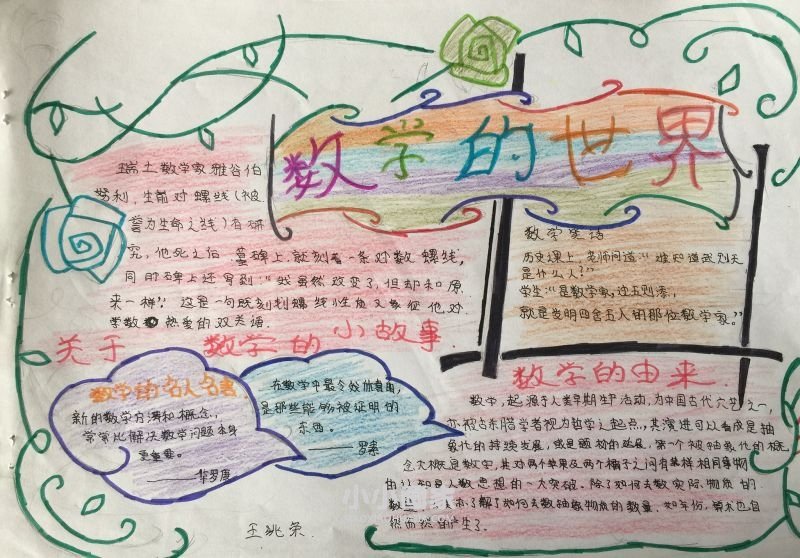 数学的世界
瑞士数学家雅谷伯
努利,生前对螺线(被
誉为生命之线)有研
究,他死之后,墓碑上就刻着一条对数螺线,
同时碑上还写到:“我虽然改变了,但却和原
来一样”。这是一句既刻划螺线性质又象征他对
学数热爱的双关语.
关于 数学的小故事.
数学笑话
历史课上,老师问道:“谁知道武则天
是什么人?”
学生:“是数学家,
就是发明四舍五入的那位数学家。”
数学的名人名言.
新的数学方法和概念,
常常比解决数学问题本身
更重要。
——华罗庚
在数学中最令我欣喜的,
是那些能够被证明的
东西。
——罗素
数学的由来.
数学,起源于人类早期生产活动,为中国古代六艺之一,
亦被古希腊学者视为哲学之起点,其演进可以看成是抽
象化的持续发展,或是题材的延展,第一个被抽象化的概
念大概是数字,其对两个苹果及两个橘子之间有某样相同事物
的认知是人数思想的一大突破。除了如何去数实际物质的
数 亦了解了如何去数抽象物质的数量,如年份,算术也自
然而然的产生了.
小小画家